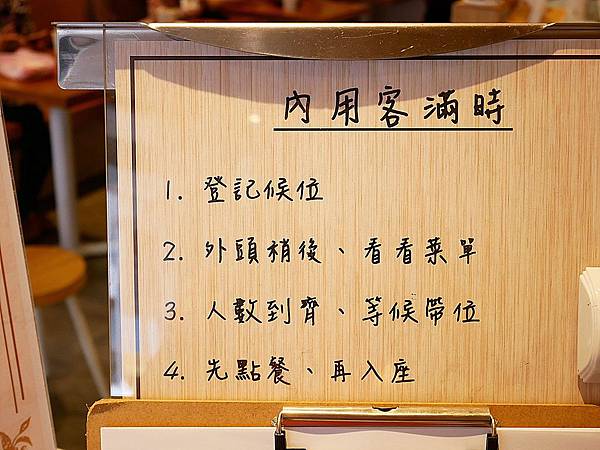 內用客滿時
1. 登記候位
2. 外頭稍後、看看菜單
3. 人數到齊、等候帶位
4. 先點餐、再入座